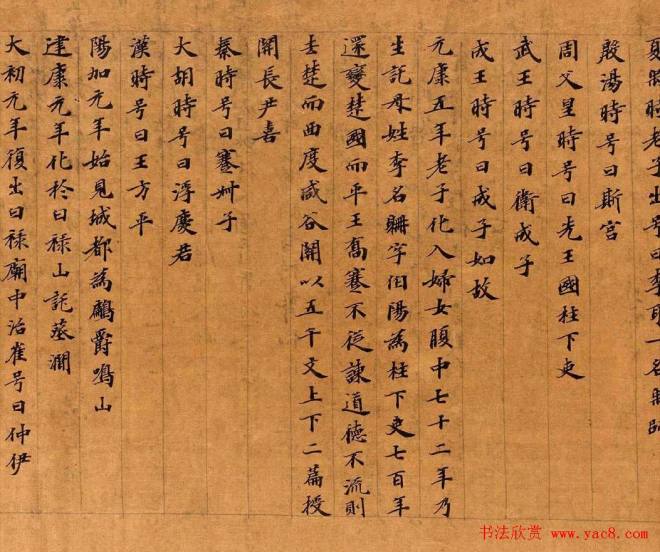 時老子出号曰李耼一名
殷湯時号曰斯宮
周父皇時号曰先王國柱下吏
武王時号曰衛成子
成王時号曰成子如故
元康五年老子化入婦女腹中七十二年乃
生託母姓李名聃字伯陽為柱下吏七百年
還變楚國而平王喬蹇不從諫道德不流則
去楚而西度咸谷關以五千文上下二篇授
關長尹喜
秦時号曰蹇叔子
大胡時号曰浮慶若
漢時号曰王方平
陽加元年始見城都為鸕爵鳴山
建康元年化於曰禄山託墓澗
大初元年復出曰禄廟中治崔号曰仲伊
书法欣赏 www.yac8.com